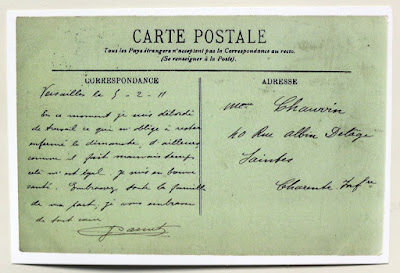 CARTE POSTALE
Tous les Pays étrangers n'acceptent pas la Correspondance au recto.
(Se renseigner à la Poste).
CORRESPONDANCE
ADRESSE
Versailles le 5-2-11
En ce moment je suis débordé
de travail ce qui m'oblige à rester
enfermé le dimanche, d'ailleurs
comme il fait mauvais temps
cela m'est égal. Je suis en bonne
santé. Embrassez toute la famille
de ma part, je vous embrasse
de tout cœur
Mme Chauvin
40 Rue Albin Delage
Saintes
Charente Infre